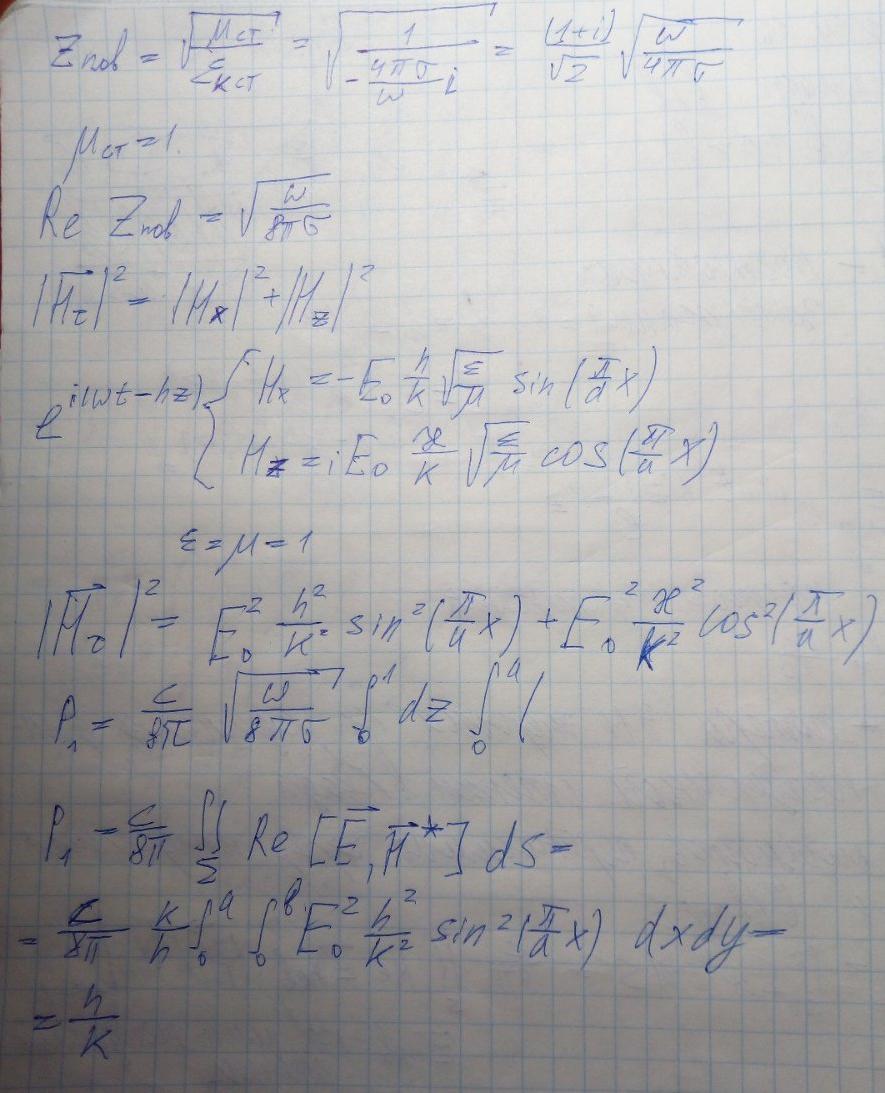 Zпов = √(μст/εкст) = √(1/(-(4πσ/ω)i)) = ((1+i)/√2) √(ω/4πσ)
μст = 1.
Re Zпов = √(ω/8πσ)
|H⃗τ|² = |Hx|² + |Hz|²
e^{i(ωt-hz)} { Hx = -E₀ (h/k) √(ε/μ) sin(π/a x)
Hz = iE₀ (æ/k) √(ε/μ) cos(π/a x)
ε = μ = 1
|H⃗τ|² = E₀² (h²/k²) sin²(π/a x) + E₀² (æ²/k²) cos²(π/a x)
P₁ = (c/8π) √(ω/8πσ) ∫₀¹ dz ∫₀ᵃ (
P₁ = (c/8π) ∬_Σ Re [E⃗, H⃗*] dS =
= (c/8π) (k/h) ∫₀ᵃ ∫₀ᵇ E₀² (h²/k²) sin²(π/a x) dxdy =
= h/k